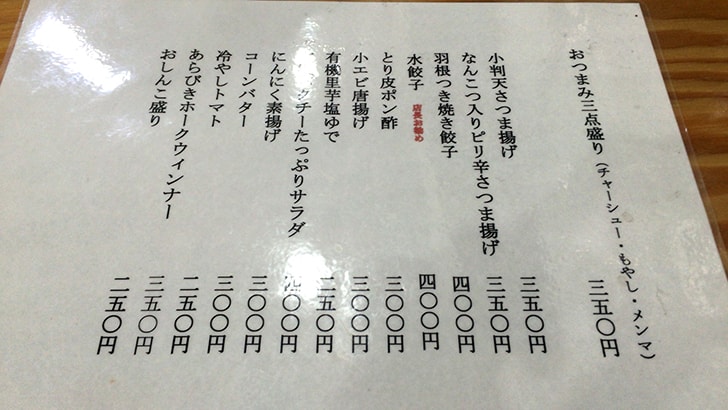 おつまみ三点盛り(チャーシュー・もやし・メンマ) 三五〇円
小判天さつま揚げ 三五〇円
なんこつ入りピリ辛さつま揚げ 三五〇円
羽根つき焼き餃子 四〇〇円
水餃子 店長お勧め 四〇〇円
とり皮ポン酢 三〇〇円
小エビ唐揚げ 三〇〇円
有機里芋塩ゆで 二五〇円
クチーたっぷりサラダ 四〇〇円
にんにく素揚げ 三〇〇円
コーンバター 三〇〇円
冷やしトマト 二五〇円
あらびきホークウィンナー 三五〇円
おしんこ盛り 二五〇円